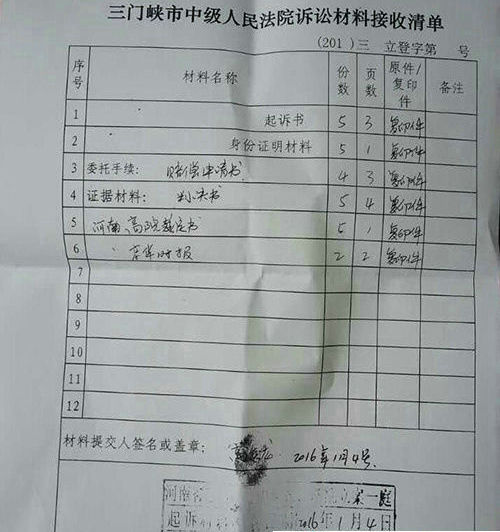 三门峡市中级人民法院诉讼材料接收清单
(201 )三 立登字第 号
序号 材料名称 份数 页数 原件/复印件 备注
1 起诉书 5 3 复印件
2 身份证明材料 5 1 复印件
3 委托手续： 赔偿申请书 4 3 复印件
4 证据材料： 判决书 5 4 复印件
5 河南高院裁定书 5 1 复印件
6 京华时报 2 2 复印件
7
8
9
10
11
12
材料提交人签名或盖章： 2016年1月4号
河南省 立案一庭
起诉 2016年1月4日